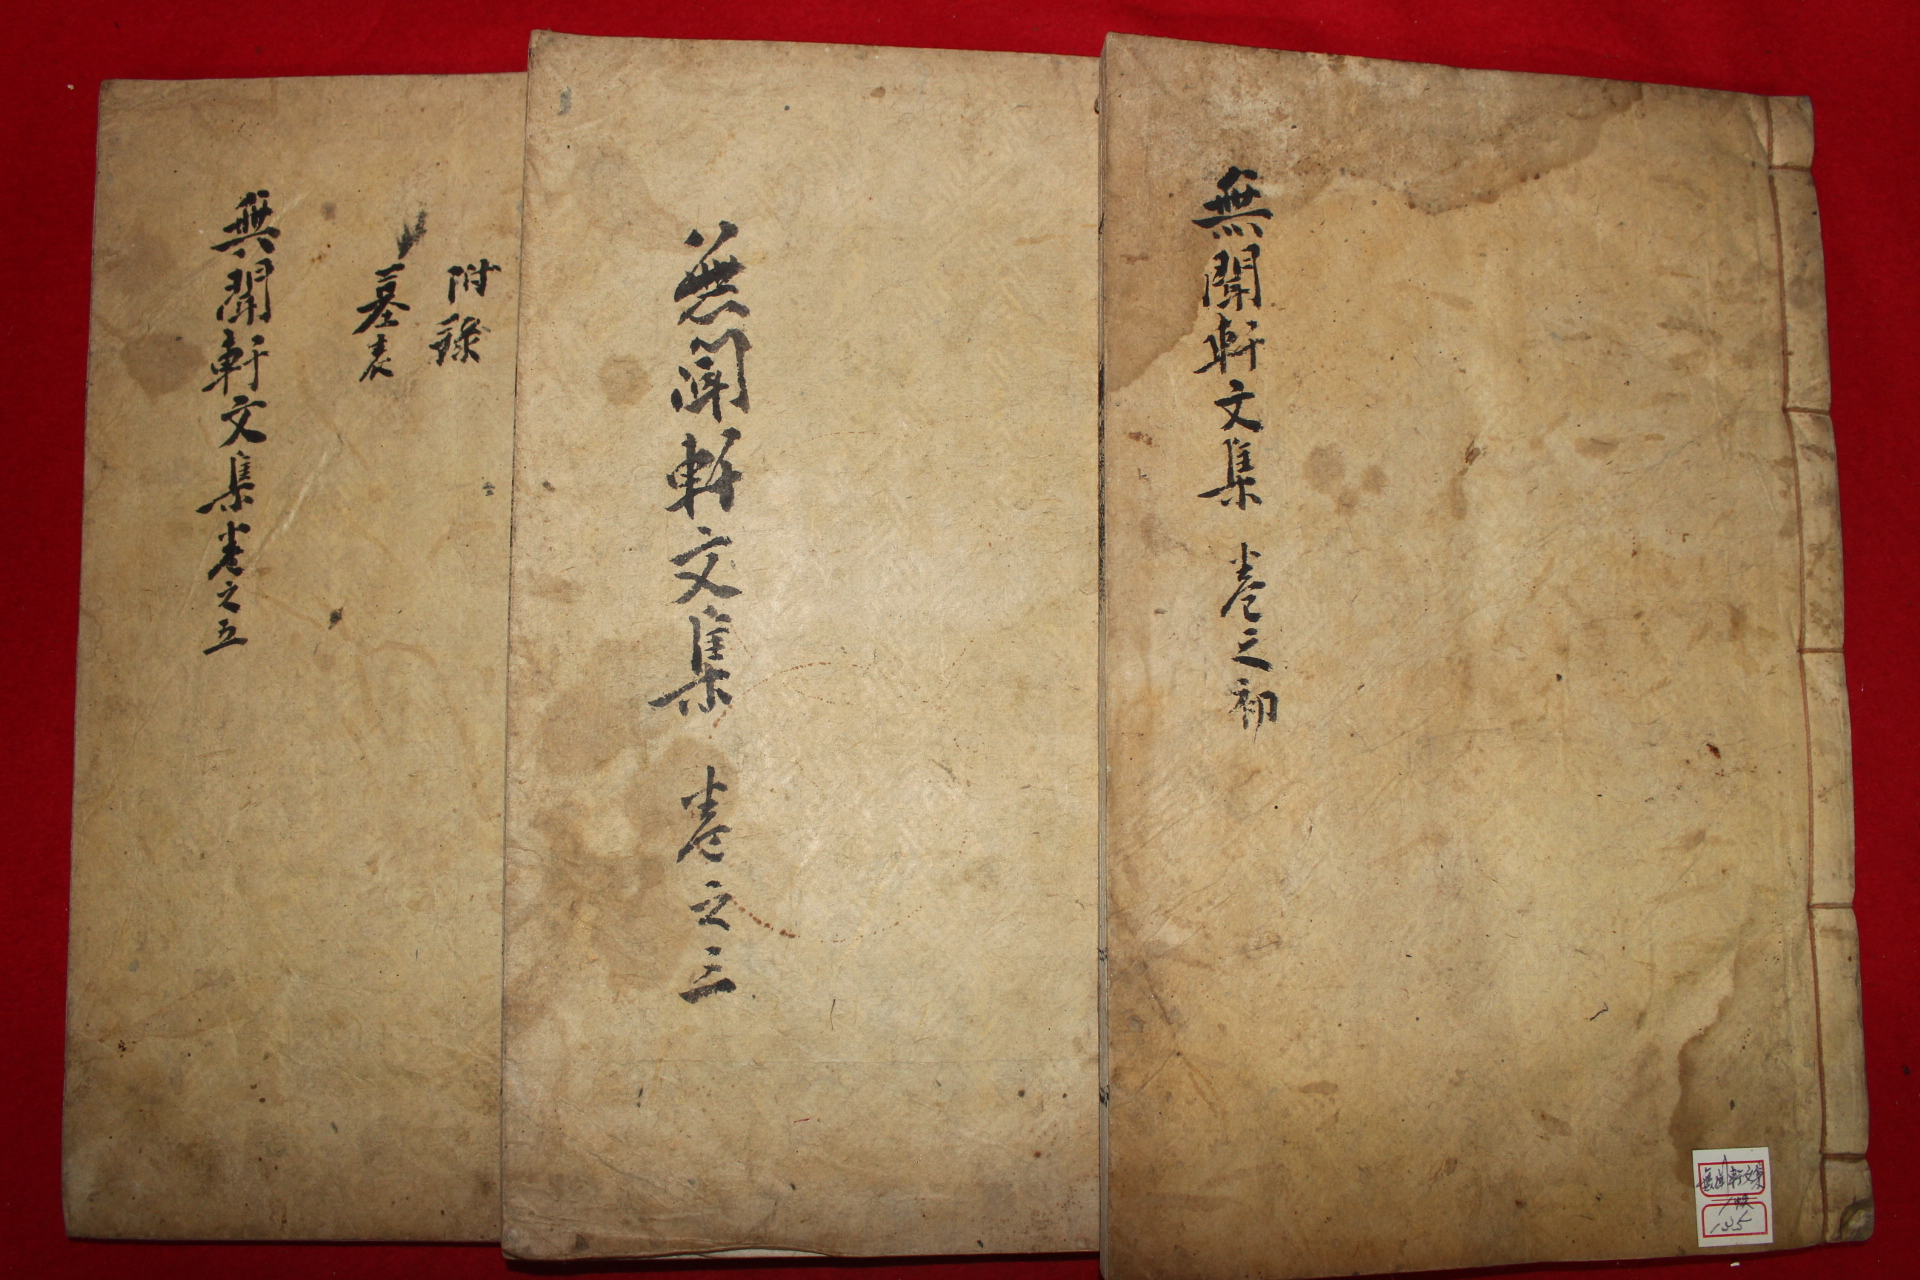 無聞軒文集 卷之初
無聞軒文集 卷之三
附錄
墓表
無聞軒文集卷之五
無聞軒文集
185